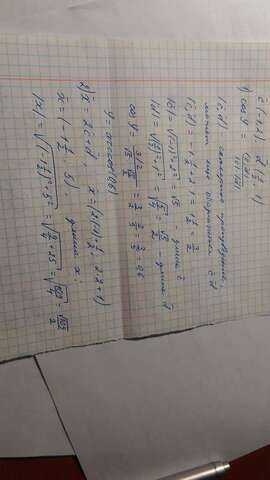 c (-1; 2) d (½; 1)
1) cos φ = (c; d) / |c|·|d|
(c; d) скалярное произведение,
может еще обозначаться c·d
(c; d) = -1·½ + 2·1 = 1½ = 3/2
|c| = √((-1)²+2²) = √5 - длина c
|d| = √((½)²+1²) = √(5/4) = √5/2 - длина d
cos φ = (3/2) / (√5·√5/2) = 3/2 : 5/2 = 3/5 = 0,6
φ = arccos(0,6)
2) x = 2c + d, x = (2·(-1)+½; 2·2+1)
x = (-1½; 5) длина x:
|x| = √((-1½)²+5²) = √(9/4+25) = √(109/4) = √109/2